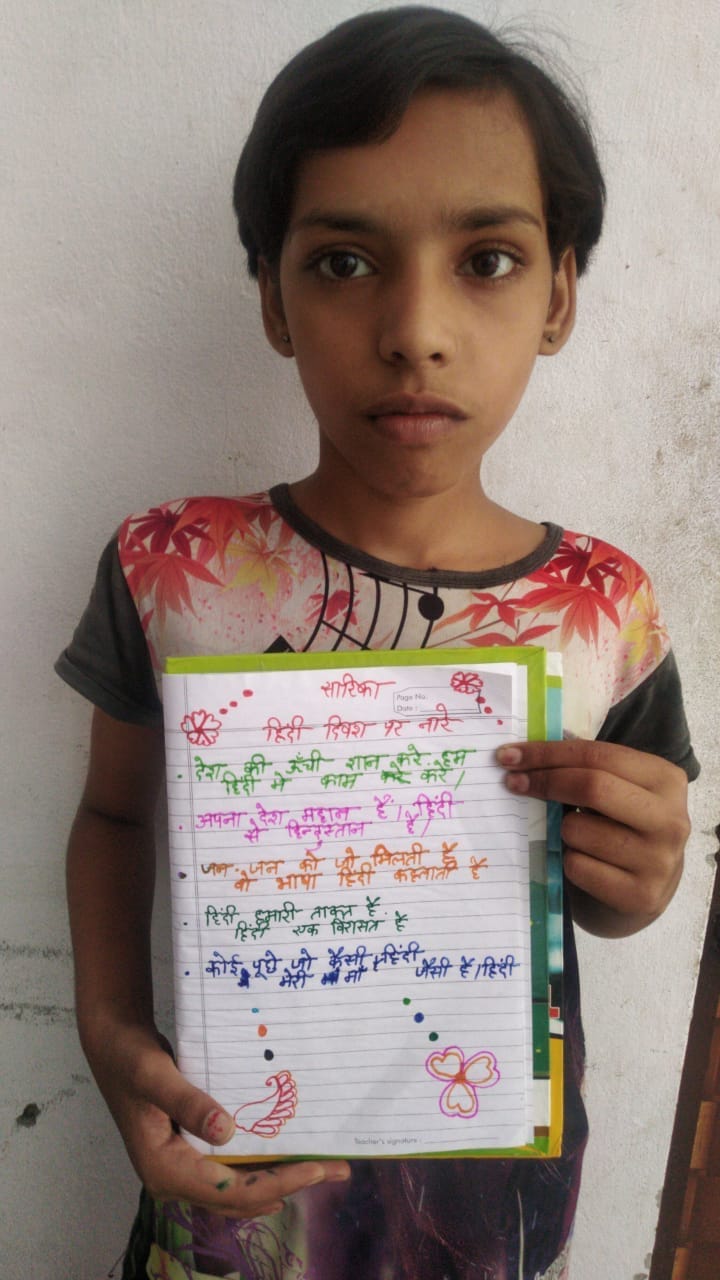 सारिका
Page No.
Date :
हिंदी दिवश पर नारे
देश की ऊँची शान करे हम
हिंदी मे काम करे करे।
अपना देश महान हैं। हिंदी
से हिन्दुस्तान है।
जन-जन को जो मिलती है
वो भाषा हिंदी कहलाती है
हिंदी हमारी ताकत है
हिंदी एक विरासत है
कोई पूछे जो कैसी हिंदी
मेरी माँ जैसी है। हिंदी
Teacher's signature :